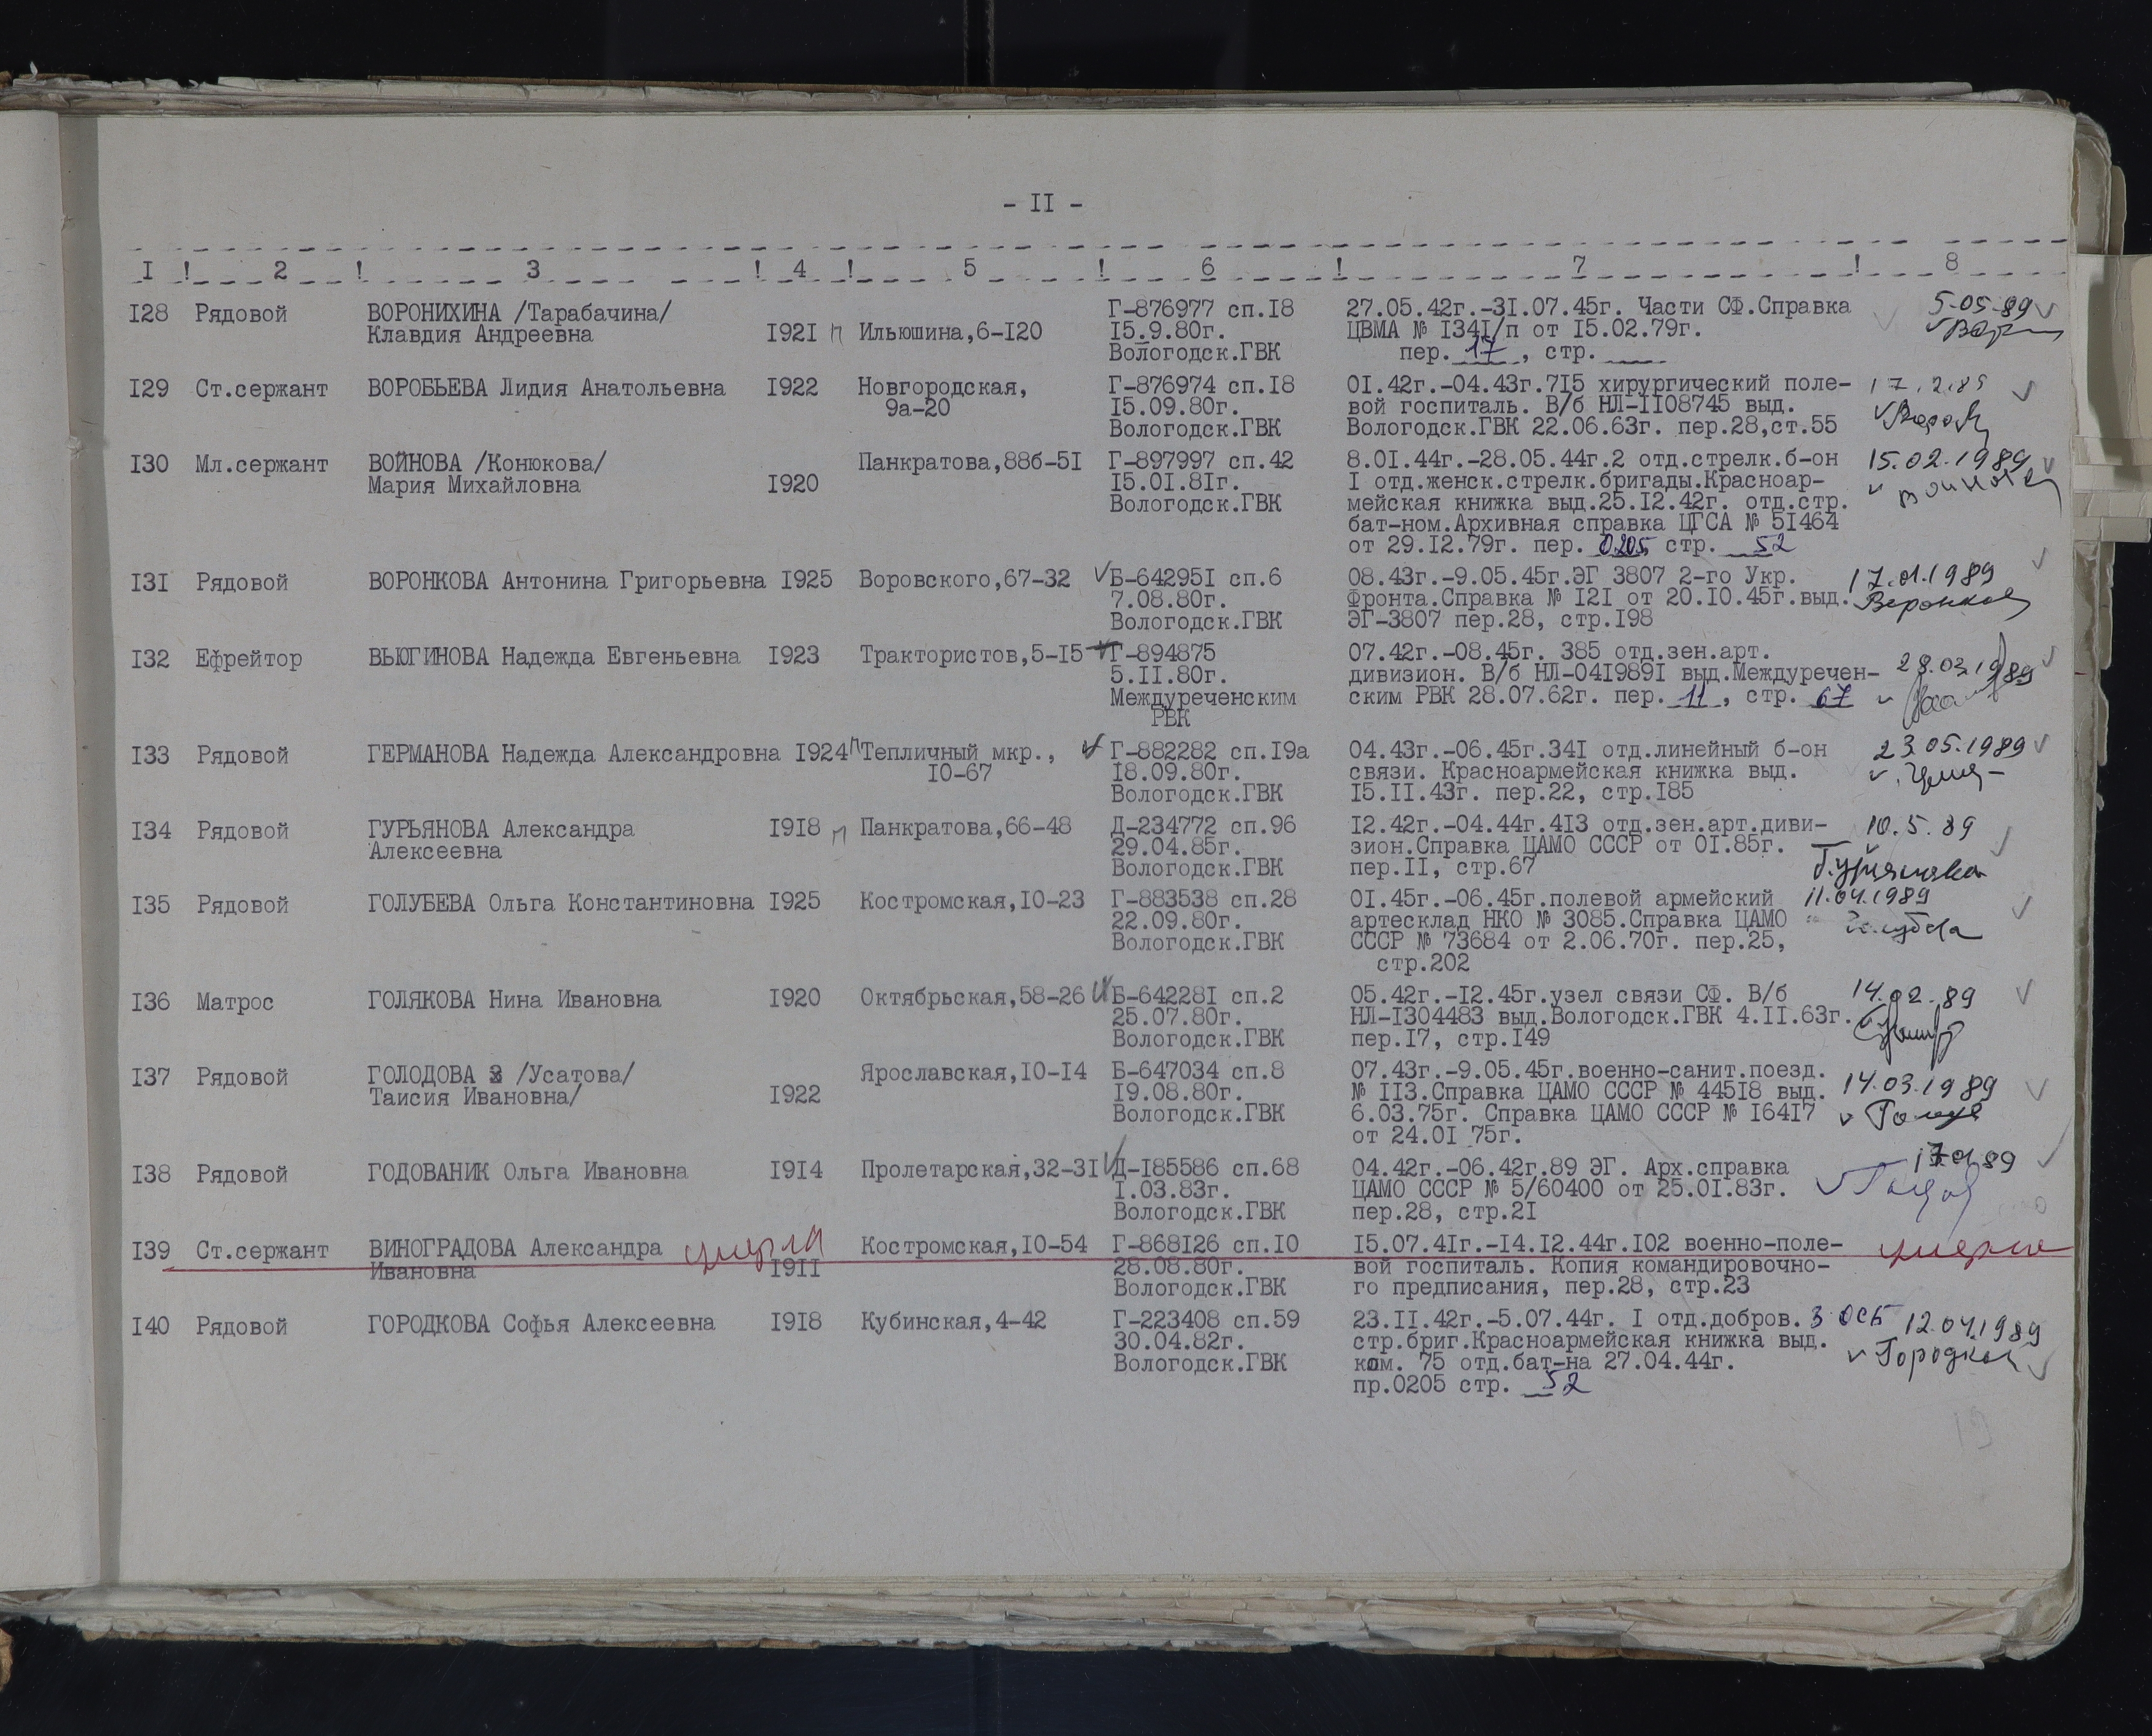 - II -
I ! 2 ! 3 ! 4 ! 5 ! 6 ! 7 ! 8
I28 Рядовой ВОРОНИХИНА /Тарабачина/ Г-876977 сп.I8 27.05.42г.-3I.07.45г. Части СФ.Справка 5-05-89
Клавдия Андреевна I92I п Ильюшина,6-I20 I5.9.80г. ЦВМА № I34I/п от I5.02.79г.
Вологодск.ГВК пер. 17 , стр.
I29 Ст.сержант ВОРОБЬЕВА Лидия Анатольевна I922 Новгородская, Г-876974 сп.I8 0I.42г.-04.43г.7I5 хирургический поле-
9а-20 I5.09.80г. вой госпиталь. В/б НЛ-II08745 выд.
Вологодск.ГВК Вологодск.ГВК 22.06.63г. пер.28,ст.55
I30 Мл.сержант ВОЙНОВА /Конюкова/ Панкратова,88б-5I Г-897997 сп.42 8.0I.44г.-28.05.44г.2 отд.стрелк.б-он 15.02.1989
Мария Михайловна I920 I5.0I.8Iг. I отд.женск.стрелк.бригады.Красноар- Войнова
Вологодск.ГВК мейская книжка выд.25.I2.42г. отд.стр.
бат-ном.Архивная справка ЦГСА № 5I464
от 29.I2.79г. пер. 0205 стр. 52
I3I Рядовой ВОРОНКОВА Антонина Григорьевна I925 Воровского,67-32 Б-64295I сп.6 08.43г.-9.05.45г.ЭГ 3807 2-го Укр. 17.01.1989
7.08.80г. Фронта.Справка № I2I от 20.I0.45г.выд. Воронкова
Вологодск.ГВК ЭГ-3807 пер.28, стр.I98
I32 Ефрейтор ВЬЮГИНОВА Надежда Евгеньевна I923 Трактористов,5-I5 Г-894875 07.42г.-08.45г. 385 отд.зен.арт.
5.II.80г. дивизион. В/б НЛ-04I989I выд.Междуречен- 28.03.1989
Междуреченским ским РВК 28.07.62г. пер. 11 , стр. 67
РВК
I33 Рядовой ГЕРМАНОВА Надежда Александровна I924 п Тепличный мкр., Г-882282 сп.I9а 04.43г.-06.45г.34I отд.линейный б-он 23.05.1989
I0-67 I8.09.80г. связи. Красноармейская книжка выд.
Вологодск.ГВК I5.II.43г. пер.22, стр.I85
I34 Рядовой ГУРЬЯНОВА Александра I9I8 п Панкратова,66-48 Д-234772 сп.96 I2.42г.-04.44г.4I3 отд.зен.арт.диви- 10.5.89
Алексеевна 29.04.85г. зион.Справка ЦАМО СССР от 0I.85г.
Вологодск.ГВК пер.II, стр.67 Гурьянова
I35 Рядовой ГОЛУБЕВА Ольга Константиновна I925 Костромская,I0-23 Г-883538 сп.28 0I.45г.-06.45г.полевой армейский 11.04.1989
22.09.80г. артесклад НКО № 3085.Справка ЦАМО
Вологодск.ГВК СССР № 73684 от 2.06.70г. пер.25,
стр.202
I36 Матрос ГОЛЯКОВА Нина Ивановна I920 Октябрьская,58-26 Б-64228I сп.2 05.42г.-I2.45г.узел связи СФ. В/б 14.02.89
25.07.80г. НЛ-I304483 выд.Вологодск.ГВК 4.II.63г.
Вологодск.ГВК пер.I7, стр.I49
I37 Рядовой ГОЛОДОВА /Усатова/ Ярославская,I0-I4 Б-647034 сп.8 07.43г.-9.05.45г.военно-санит.поезд.
Таисия Ивановна/ I922 I9.08.80г. № II3.Справка ЦАМО СССР № 445I8 выд. 14.03.1989
Вологодск.ГВК 6.03.75г. Справка ЦАМО СССР № I64I7
от 24.0I 75г.
I38 Рядовой ГОДОВАНИК Ольга Ивановна I9I4 Пролетарская,32-3I Д-I85586 сп.68 04.42г.-06.42г.89 ЭГ. Арх.справка
I.03.83г. ЦАМО СССР № 5/60400 от 25.0I.83г.
Вологодск.ГВК пер.28, стр.2I
I39 Ст.сержант ВИНОГРАДОВА Александра умерла Костромская,I0-54 Г-868I26 сп.I0 I5.07.4Iг.-I4.I2.44г.I02 военно-поле- умерла
Ивановна I9II 28.08.80г. вой госпиталь. Копия командировочно-
Вологодск.ГВК го предписания, пер.28, стр.23
I40 Рядовой ГОРОДКОВА Софья Алексеевна I9I8 Кубинская,4-42 Г-223408 сп.59 23.II.42г.-5.07.44г. I отд.добров. 3 ОСБ 12.04.1989
30.04.82г. стр.бриг.Красноармейская книжка выд. Городкова
Вологодск.ГВК ком. 75 отд.бат-на 27.04.44г.
пр.0205 стр. 52